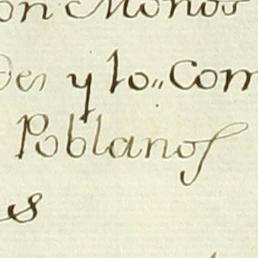 on Monos
des y lo,, Com
Poblanos
s